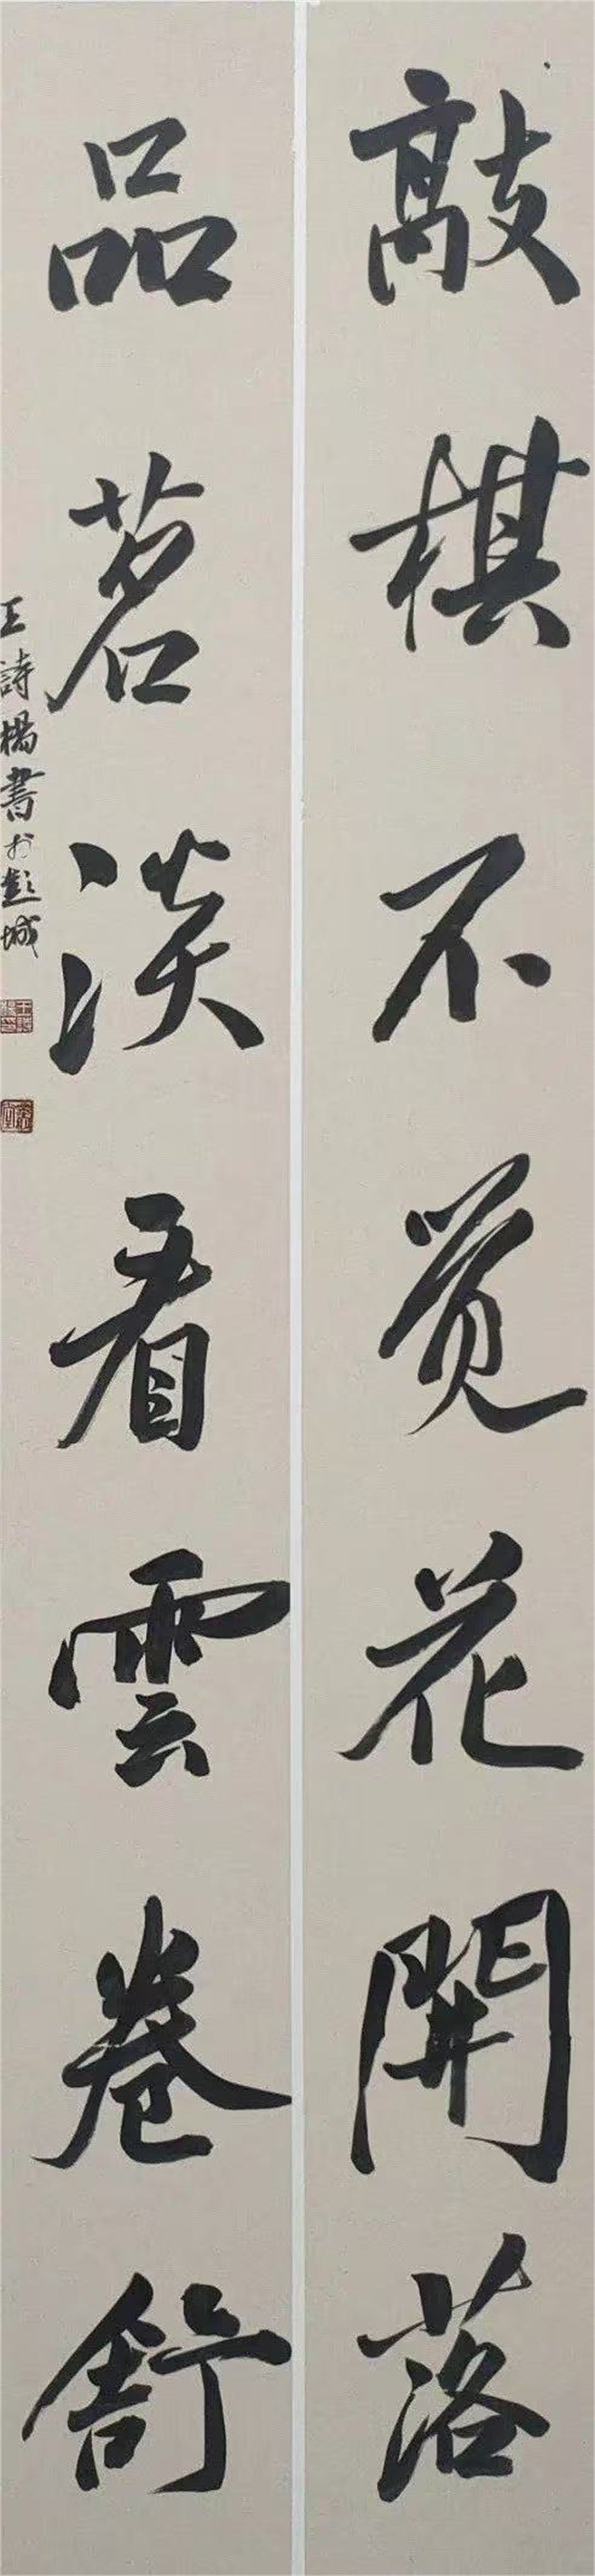 敲棋不觉花開落
品茗淡看雲卷舒
王詩楊書於彭城